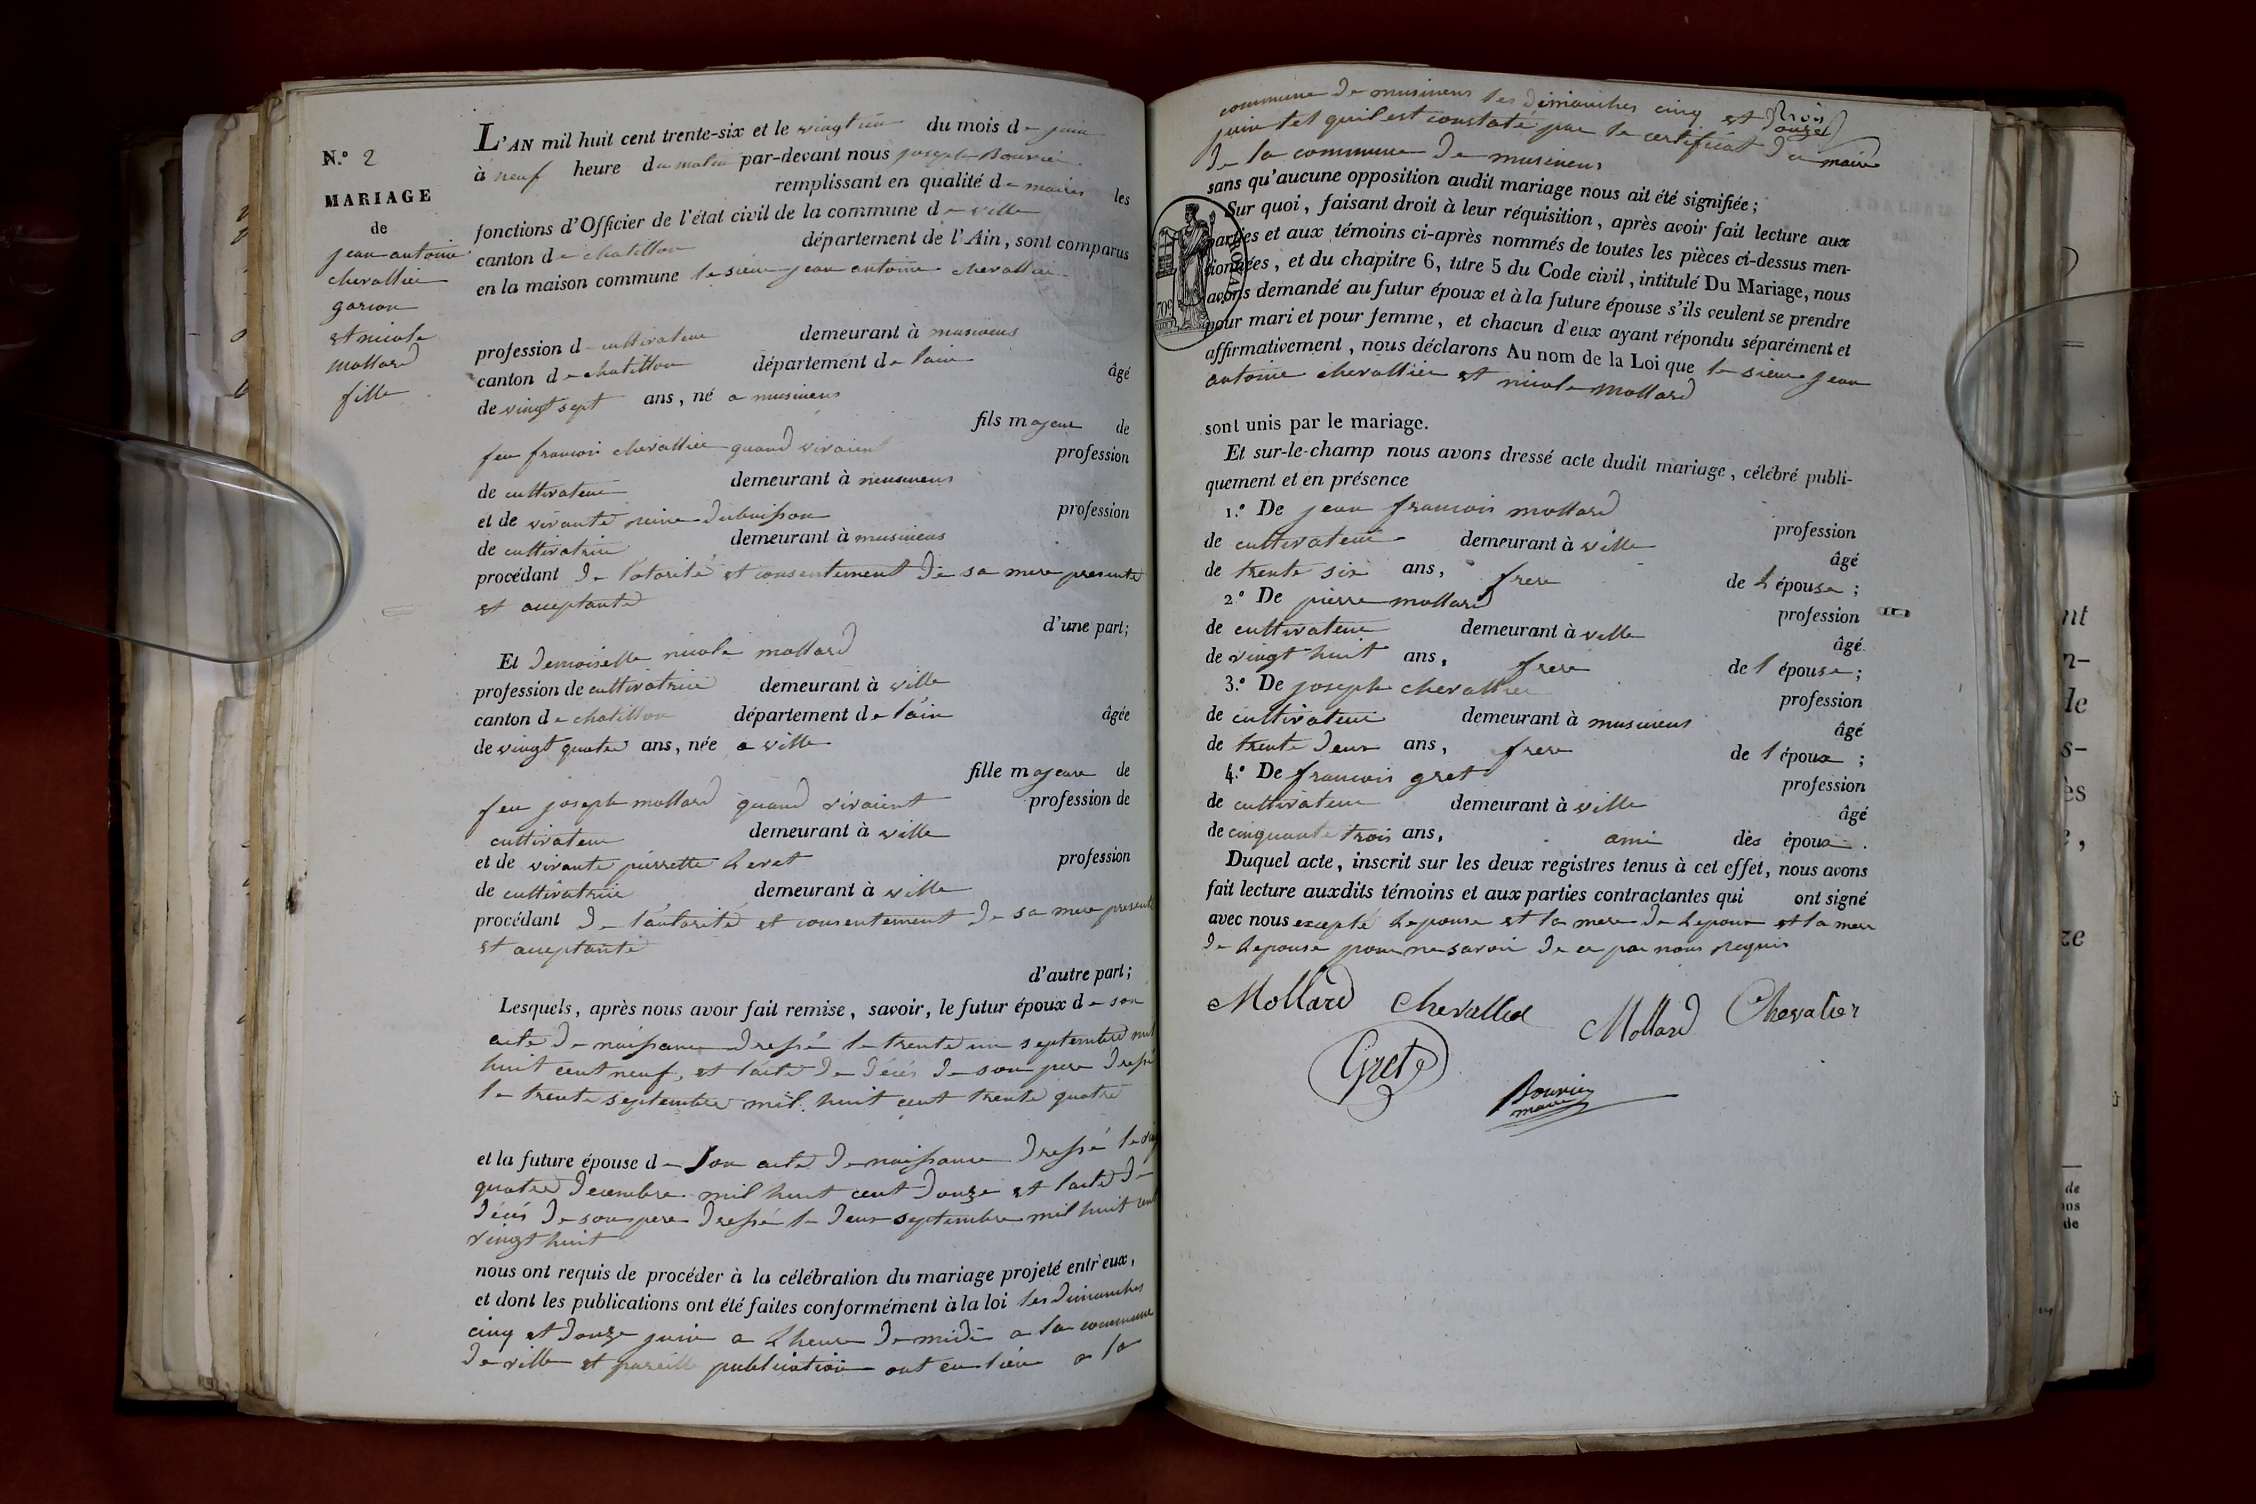 N.° 2
MARIAGE
de
jean antoine
chevallier
garçon
et nicole
mollard
fille
L'AN mil huit cent trente-six et le vingt un du mois de juin
à neuf heure du matin par-devant nous joseph Bouvier
remplissant en qualité de maire les
fonctions d'Officier de l'état civil de la commune de ville
canton de chatillon département de l'Ain, sont comparus
en la maison commune le sieur jean antoine chevallier
profession de cultivateur demeurant à musinens
canton de chatillon département de lain âgé
de vingt sept ans, né a musinens
fils majeur de
feu francois chevallier quand vivoient profession
de cultivateur demeurant à musinens
et de vivante reine dubuisson profession
de cultivatrice demeurant à musinens
procédant de lotorité et consentement de sa mere presente
et acceptante
d'une part;
Et demoiselle nicole mollard
profession de cultivatrice demeurant à ville
canton de chatillon département de l'ain âgée
de vingt quatre ans, née a ville
fille majeure de
feu joseph mollard quand vivoient profession de
cultivateur demeurant à ville
et de vivante pierrette Leret profession
de cultivatrice demeurant à ville
procédant de l'autorité et consentement de sa mere presente
et acceptante
d'autre part;
Lesquels, après nous avoir fait remise, savoir, le futur époux de son
acte de naissance dressé le trente un septembre mil
huit cent neuf, et l'acte de décés de son pere dressé
le trente septembre mil huit cent trente quatre
et la future épouse de son acte de naissance dressé le
quatre decembre mil huit cent douze et lacte de
décés de son pere dressé le deux septembre mil huit cent
vingt huit
nous ont requis de procéder à la célébration du mariage projeté entr'eux,
et dont les publications ont été faites conformément à la loi les dimanches
cinq et douze juin a Lheure de midi a la commune
de ville et pareille publication ont eu lieu a la
commune de musinens les dimanches cinq et
juin tel quil est constaté par le certificat du maire
de la commune de musinens
sans qu'aucune opposition audit mariage nous ait été signifiée;
Sur quoi, faisant droit à leur réquisition, après avoir fait lecture aux
parties et aux témoins ci-après nommés de toutes les pièces ci-dessus men-
tionnées, et du chapitre 6, titre 5 du Code civil, intitulé Du Mariage, nous
avons demandé au futur époux et à la future épouse s'ils veulent se prendre
pour mari et pour femme, et chacun d'eux ayant répondu séparément et
affirmativement, nous déclarons Au nom de la Loi que le sieur jean
antoine chevallier et nicole mollard
sont unis par le mariage.
Et sur-le-champ nous avons dressé acte dudit mariage, célébré publi-
quement et en présence
1.° De jean francois mollard profession
de cultivateur demeurant à ville âgé
de trente six ans, frere de L épouse;
2.° De pierre mollard profession
de cultivateur demeurant à ville âgé
de vingt huit ans, frere de l épouse;
3.° De joseph chevallier profession
de cultivateur demeurant à musinens âgé
de trente deux ans, frere de l époux;
4.° De francois gret profession
de cultivateur demeurant à ville âgé
de cinquante trois ans, ami des époux.
Duquel acte, inscrit sur les deux registres tenus à cet effet, nous avons
fait lecture auxdits témoins et aux parties contractantes qui ont signé
avec nous excepté Lepouse et la mere de Lepoux et la mere
de Lepouse pour ne savoir de ce par nous requis
Mollard Chevallier Mollard Chevalier
Gret
Bouvier
maire